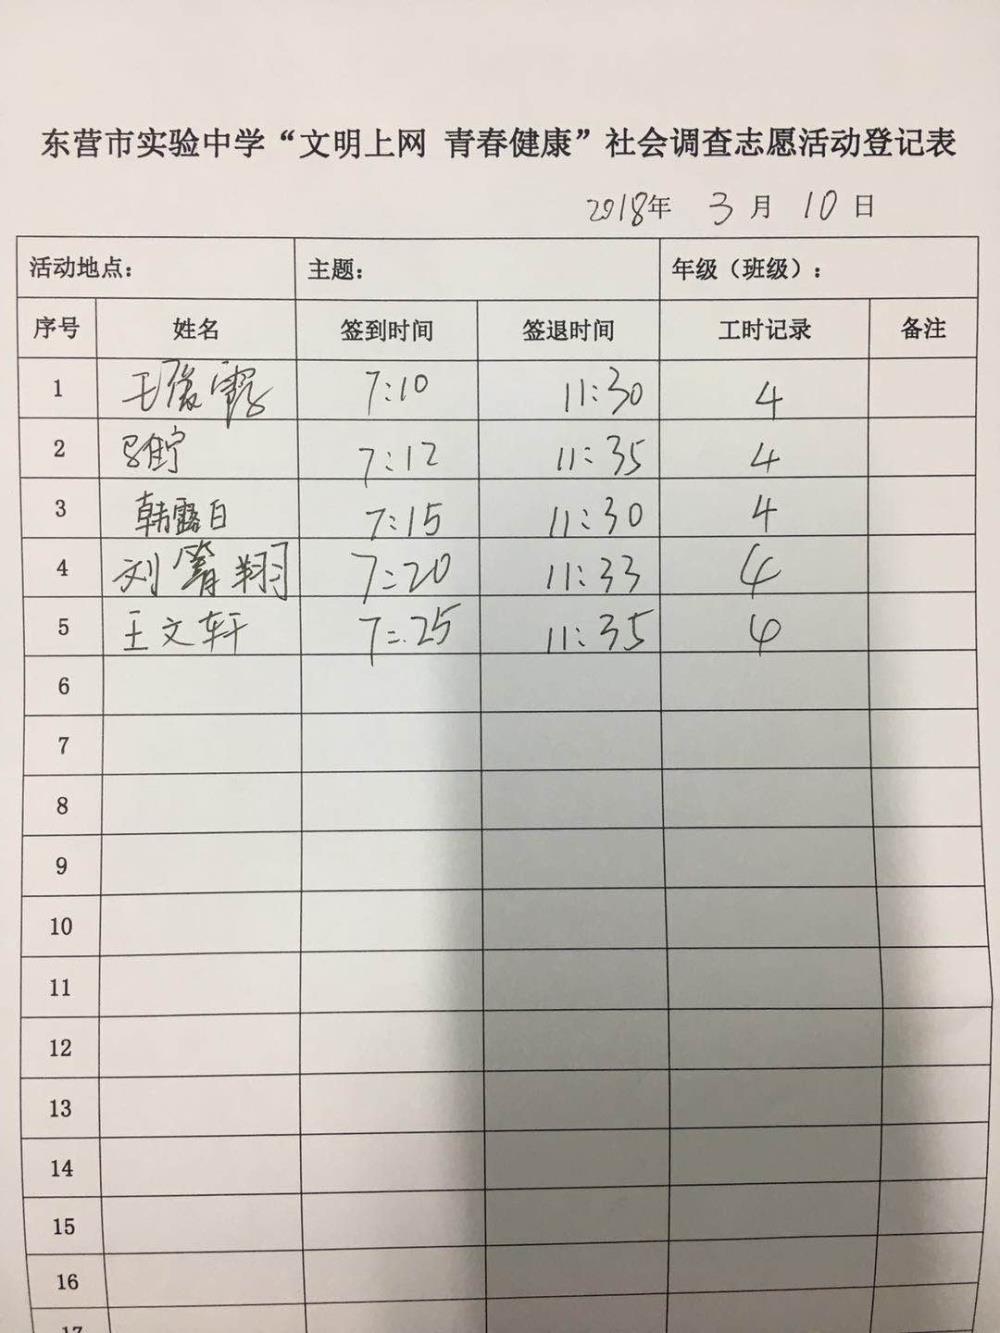 东营市实验中学“文明上网 青春健康”社会调查志愿活动登记表
2018年 3月 10日
活动地点： 主题： 年级（班级）：
序号 姓名 签到时间 签退时间 工时记录 备注
1 王俊霞 7:10 11:30 4
2 7:12 11:35 4
3 韩露白 7:15 11:30 4
4 刘 翔 7:20 11:33 4
5 王文轩 7:25 11:35 4
6
7
8
9
10
11
12
13
14
15
16
17